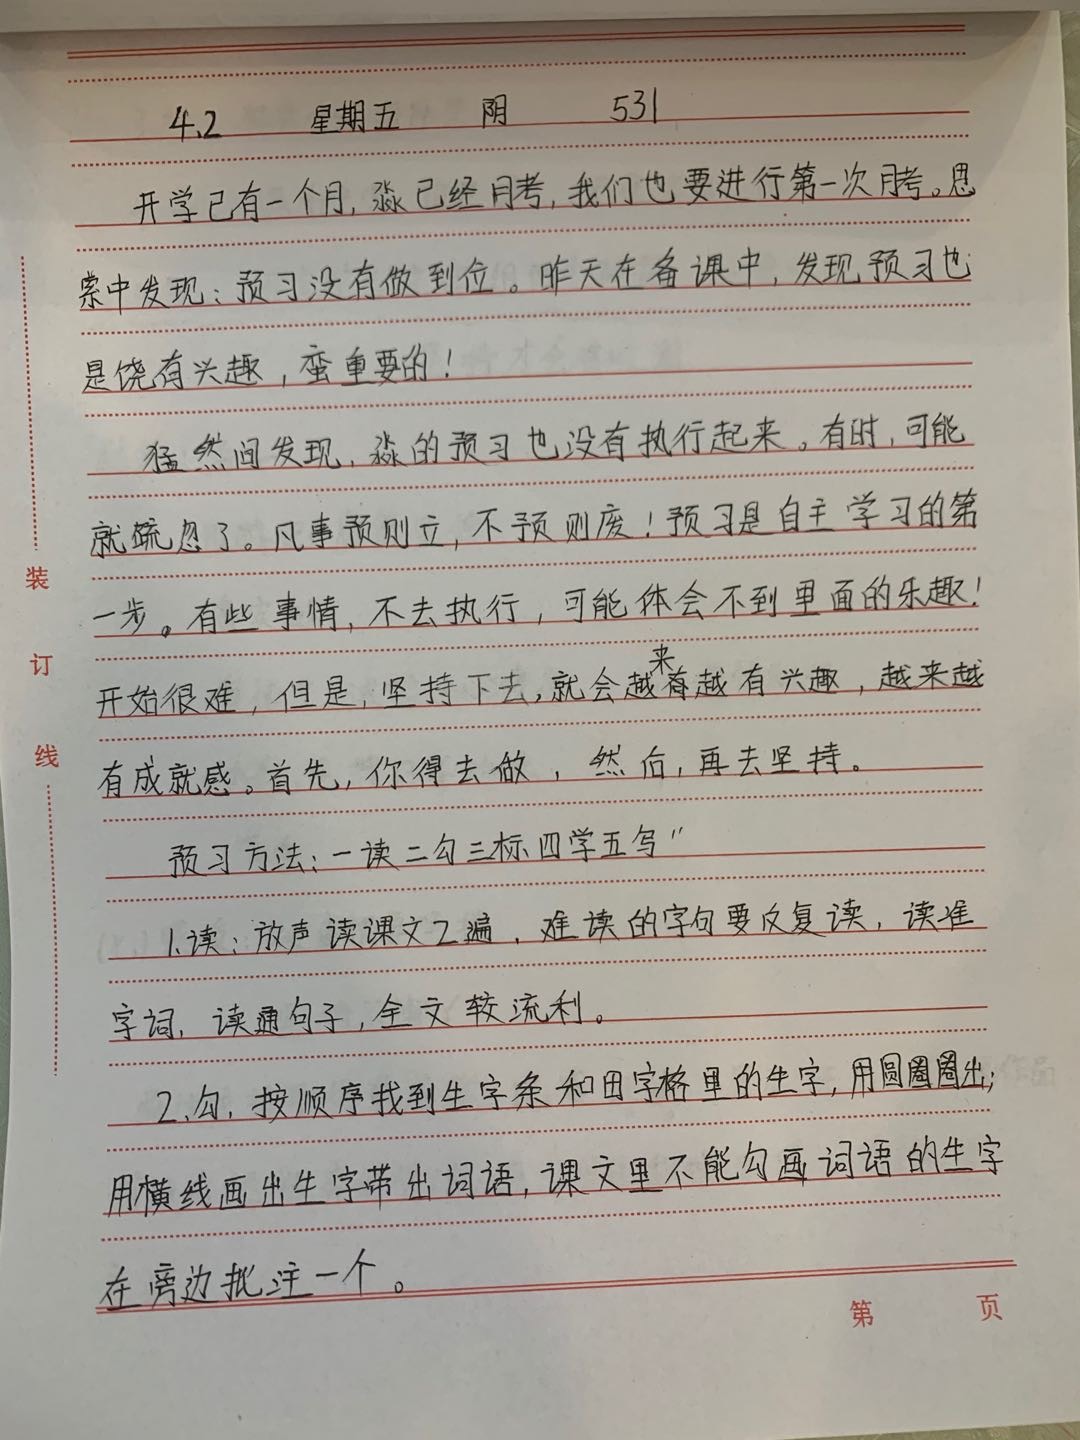 4.2 星期五 阴 531
开学已有一个月,淼已经月考,我们也要进行第一次月考。思
索中发现:预习没有做到位。昨天在备课中,发现预习也
是饶有兴趣,蛮重要的!
猛然间发现,淼的预习也没有执行起来。有时,可能
就疏忽了。凡事预则立,不预则废!预习是自主学习的第
一步。有些事情,不去执行,可能体会不到里面的乐趣!
开始很难,但是,坚持下去,就会越来越有兴趣,越来越
有成就感。首先,你得去做,然后,再去坚持。
预习方法:一读二勾三标四学五写"
1.读:放声读课文2遍,难读的字句要反复读,读准
字词,读通句子,全文较流利。
2.勾,按顺序找到生字条和田字格里的生字,用圆圈圈出;
用横线画出生字带出词语,课文里不能勾画词语的生字
在旁边批注一个。
装
订
线
第 页